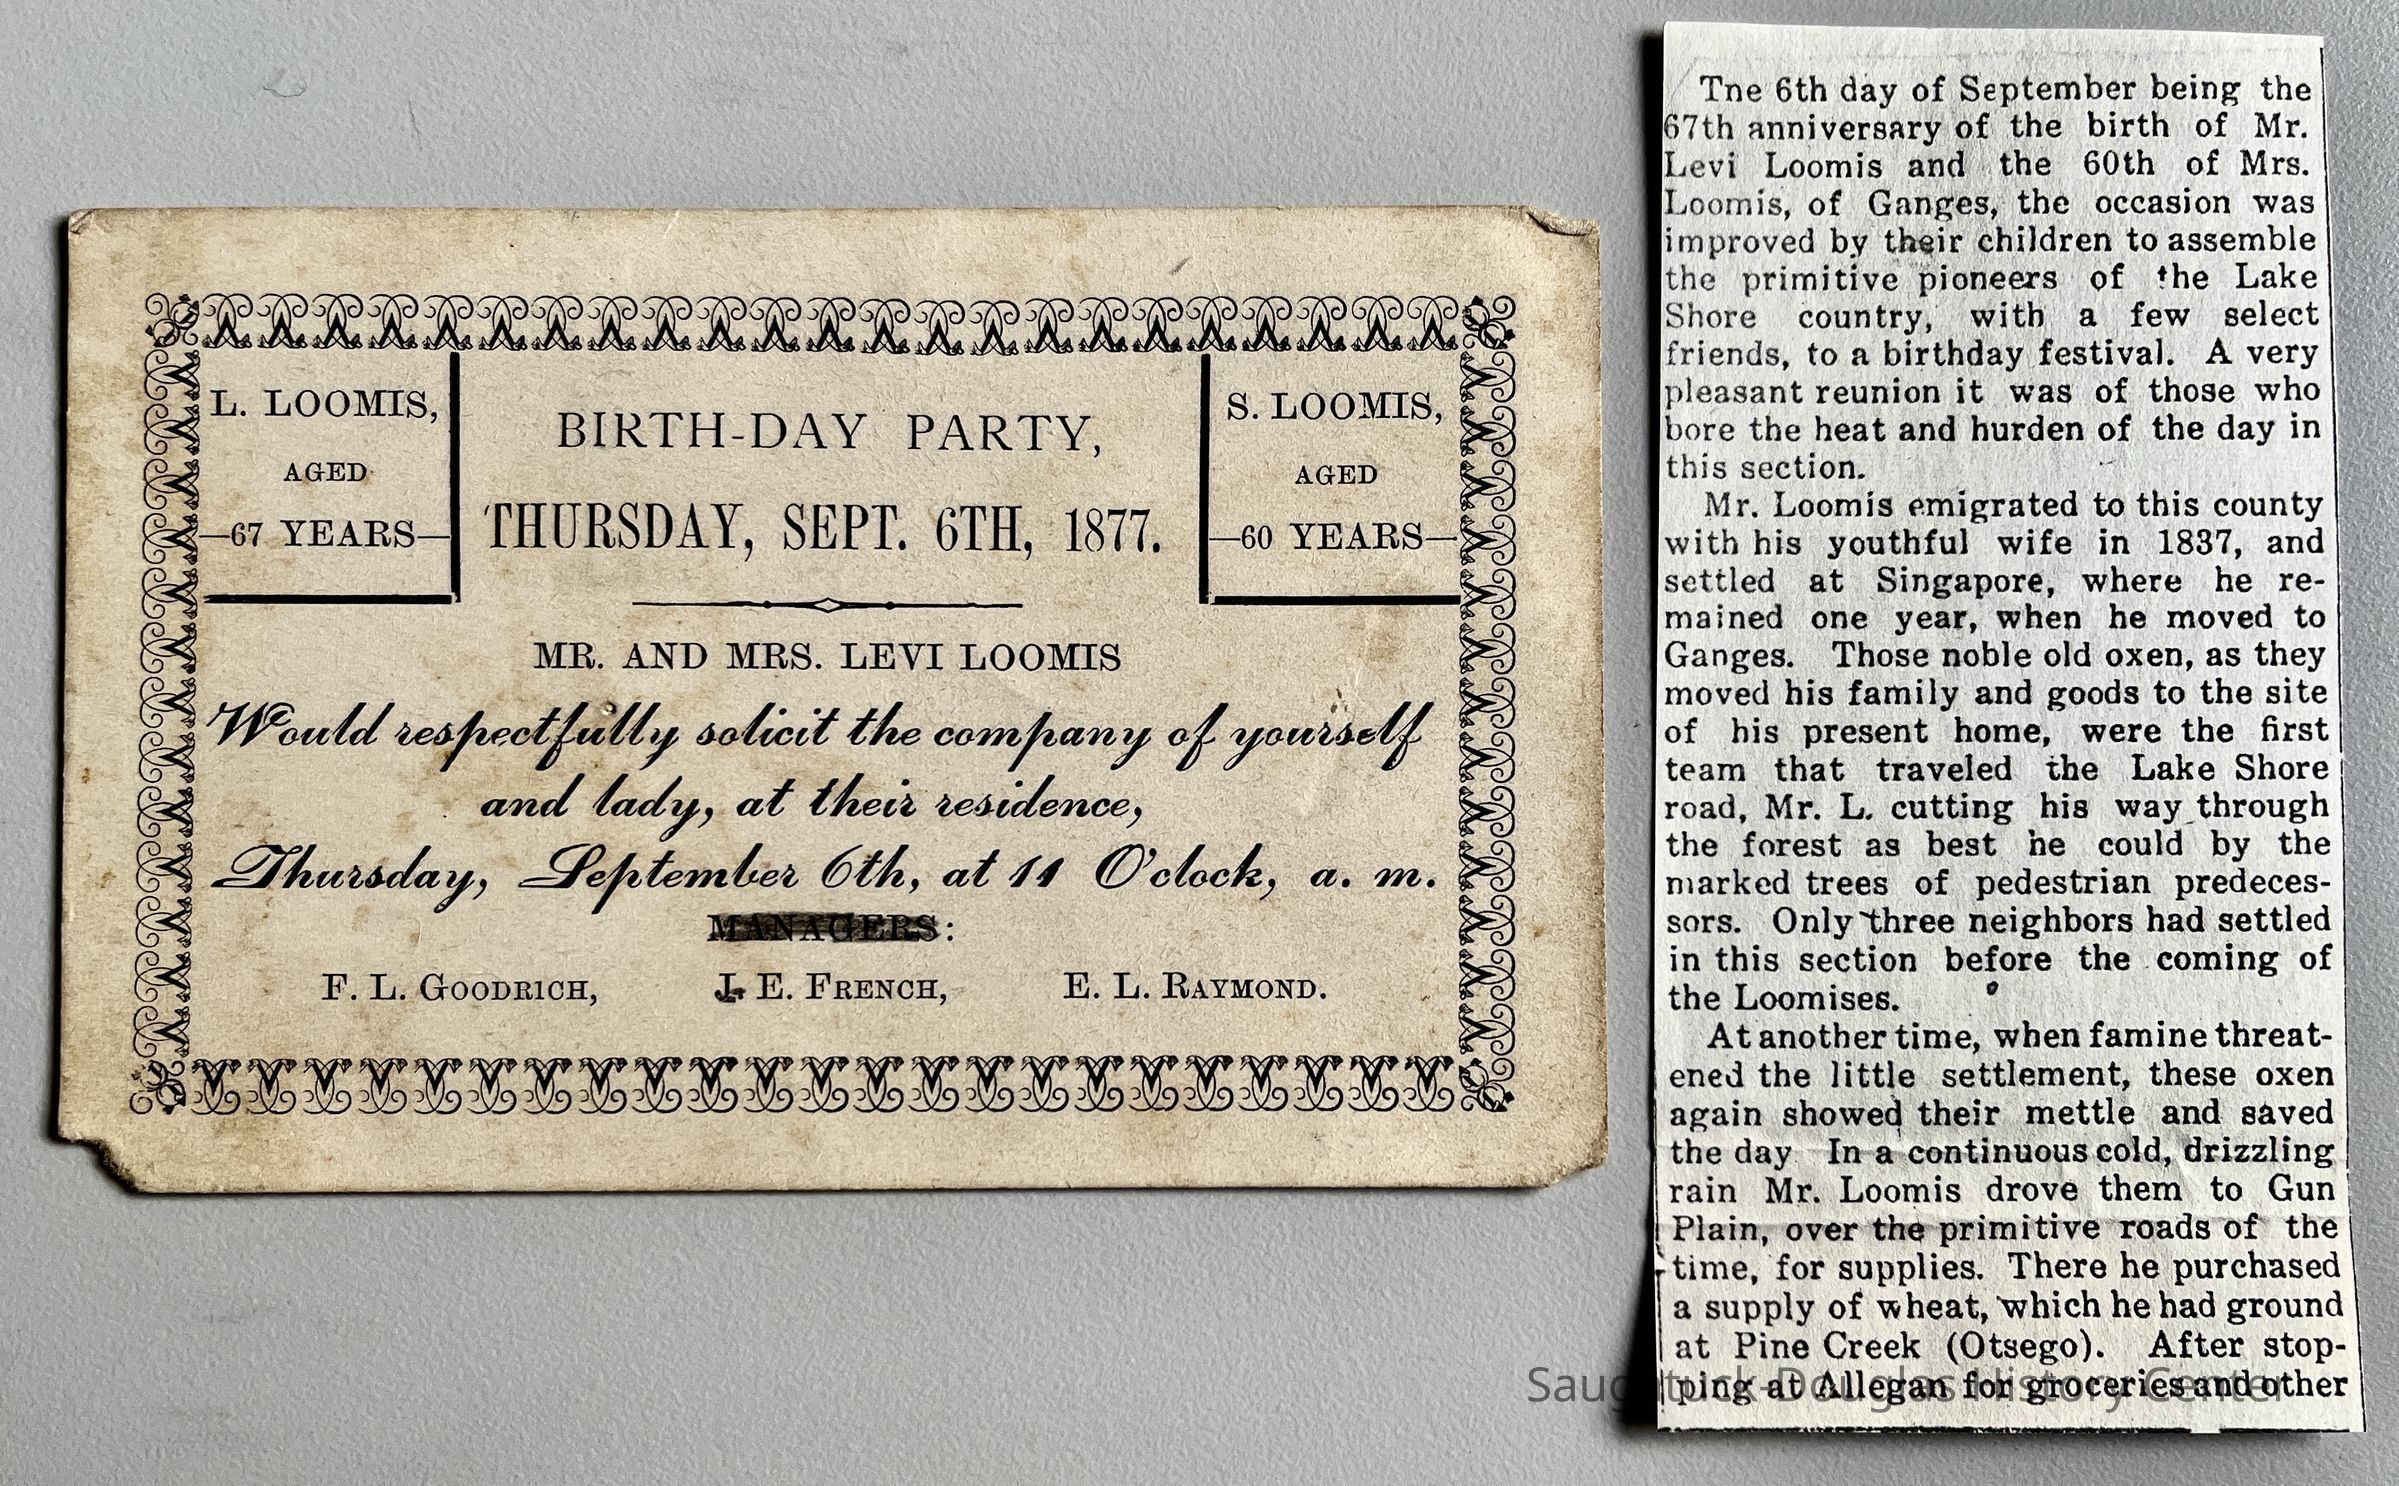 L. LOOMIS,
AGED
—67 YEARS—
BIRTH-DAY PARTY,
THURSDAY, SEPT. 6TH, 1877.
S. LOOMIS,
AGED
—60 YEARS—
MR. AND MRS. LEVI LOOMIS
Would respectfully solicit the company of yourself
and lady, at their residence,
Thursday, September 6th, at 11 O'clock, a. m.
MANAGERS:
F. L. GOODRICH, J. E. FRENCH, E. L. RAYMOND.
Tne 6th day of September being the
67th anniversary of the birth of Mr.
Levi Loomis and the 60th of Mrs.
Loomis, of Ganges, the occasion was
improved by their children to assemble
the primitive pioneers of the Lake
Shore country, with a few select
friends, to a birthday festival. A very
pleasant reunion it was of those who
bore the heat and hurden of the day in
this section.
Mr. Loomis emigrated to this county
with his youthful wife in 1837, and
settled at Singapore, where he re-
mained one year, when he moved to
Ganges. Those noble old oxen, as they
moved his family and goods to the site
of his present home, were the first
team that traveled the Lake Shore
road, Mr. L. cutting his way through
the forest as best he could by the
marked trees of pedestrian predeces-
sors. Only three neighbors had settled
in this section before the coming of
the Loomises.
At another time, when famine threat-
ened the little settlement, these oxen
again showed their mettle and saved
the day In a continuous cold, drizzling
rain Mr. Loomis drove them to Gun
Plain, over the primitive roads of the
time, for supplies. There he purchased
a supply of wheat, which he had ground
at Pine Creek (Otsego). After stop-
ping at Allegan for groceries and other
Saugatuck-Douglas History Center